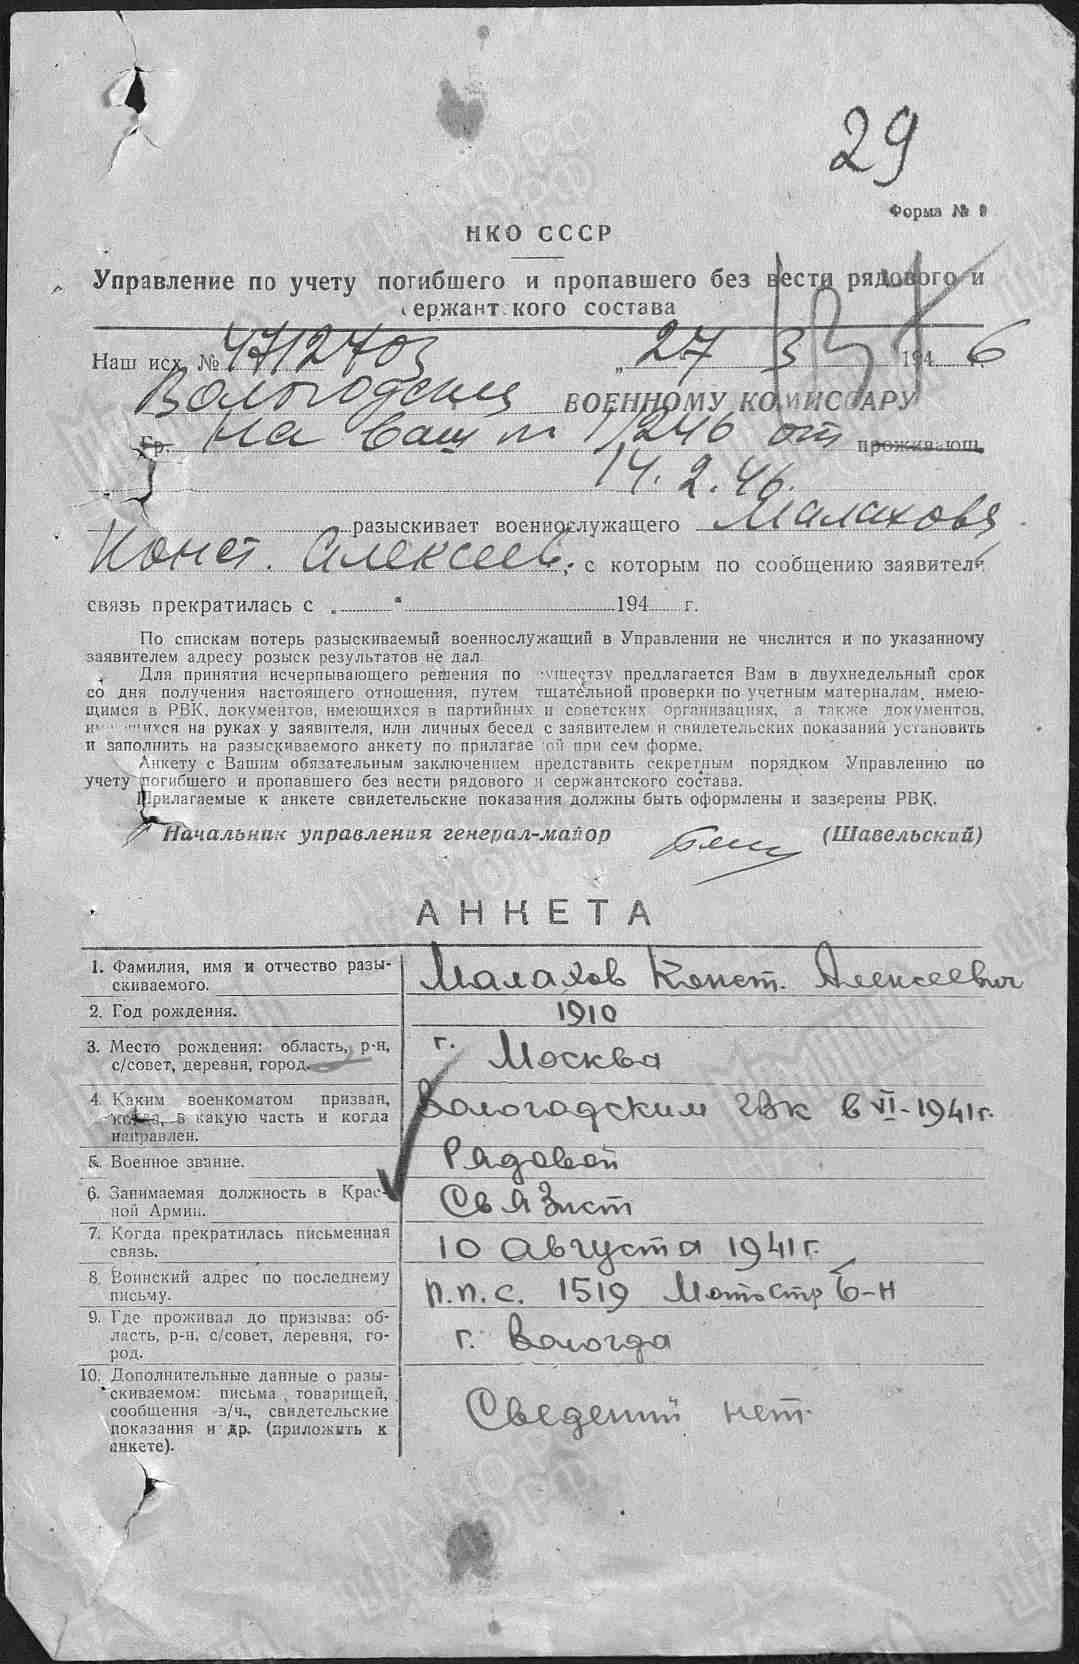 29
Форма № 9
НКО СССР
Управление по учету погибшего и пропавшего без вести рядового и
сержантского состава
Наш исх. № 47/2703 „27 3 1946 г.
Вологодский ВОЕННОМУ КОМИССАРУ
Гр. На ваш № 1/246 от проживающ.
14.2.46.
разыскивает военнослужащего Малахова
Конст. Алексеев., с которым по сообщению заявителя
связь прекратилась с „ “ 194 г.
По спискам потерь разыскиваемый военнослужащий в Управлении не числится и по указанному
заявителем адресу розыск результатов не дал.
Для принятия исчерпывающего решения по существу предлагается Вам в двухнедельный срок
со дня получения настоящего отношения, путем тщательной проверки по учетным материалам, имею-
щимся в РВК, документов, имеющихся в партийных и советских организациях, а также документов,
имеющихся на руках у заявителя, или личных бесед с заявителем и свидетельских показаний установить
и заполнить на разыскиваемого анкету по прилагаемой при сем форме.
Анкету с Вашим обязательным заключением представить секретным порядком Управлению по
учету погибшего и пропавшего без вести рядового и сержантского состава.
Прилагаемые к анкете свидетельские показания должны быть оформлены и заверены РВК.
Начальник управления генерал-майор (Шавельский)
АНКЕТА
1. Фамилия, имя и отчество разы-
скиваемого.
Малахов Конст. Алексеевич
2. Год рождения.
1910
3. Место рождения: область, р-н,
с/совет, деревня, город.
г. Москва
4. Каким военкоматом призван,
когда, в какую часть и когда
направлен.
Вологодским ГВК в VI-1941 г.
5. Военное звание.
Рядовой
6. Занимаемая должность в Крас-
ной Армии.
Связист
7. Когда прекратилась письменная
связь.
10 августа 1941 г.
8. Воинский адрес по последнему
письму.
п.п.с. 1519 Мотостр б-н
9. Где проживал до призыва: об-
ласть, р-н, с/совет, деревня, го-
род.
г. Вологда
10. Дополнительные данные о разы-
скиваемом: письма товарищей,
сообщения в/ч., свидетельские
показания и др. (приложить к
анкете).
Сведений нет